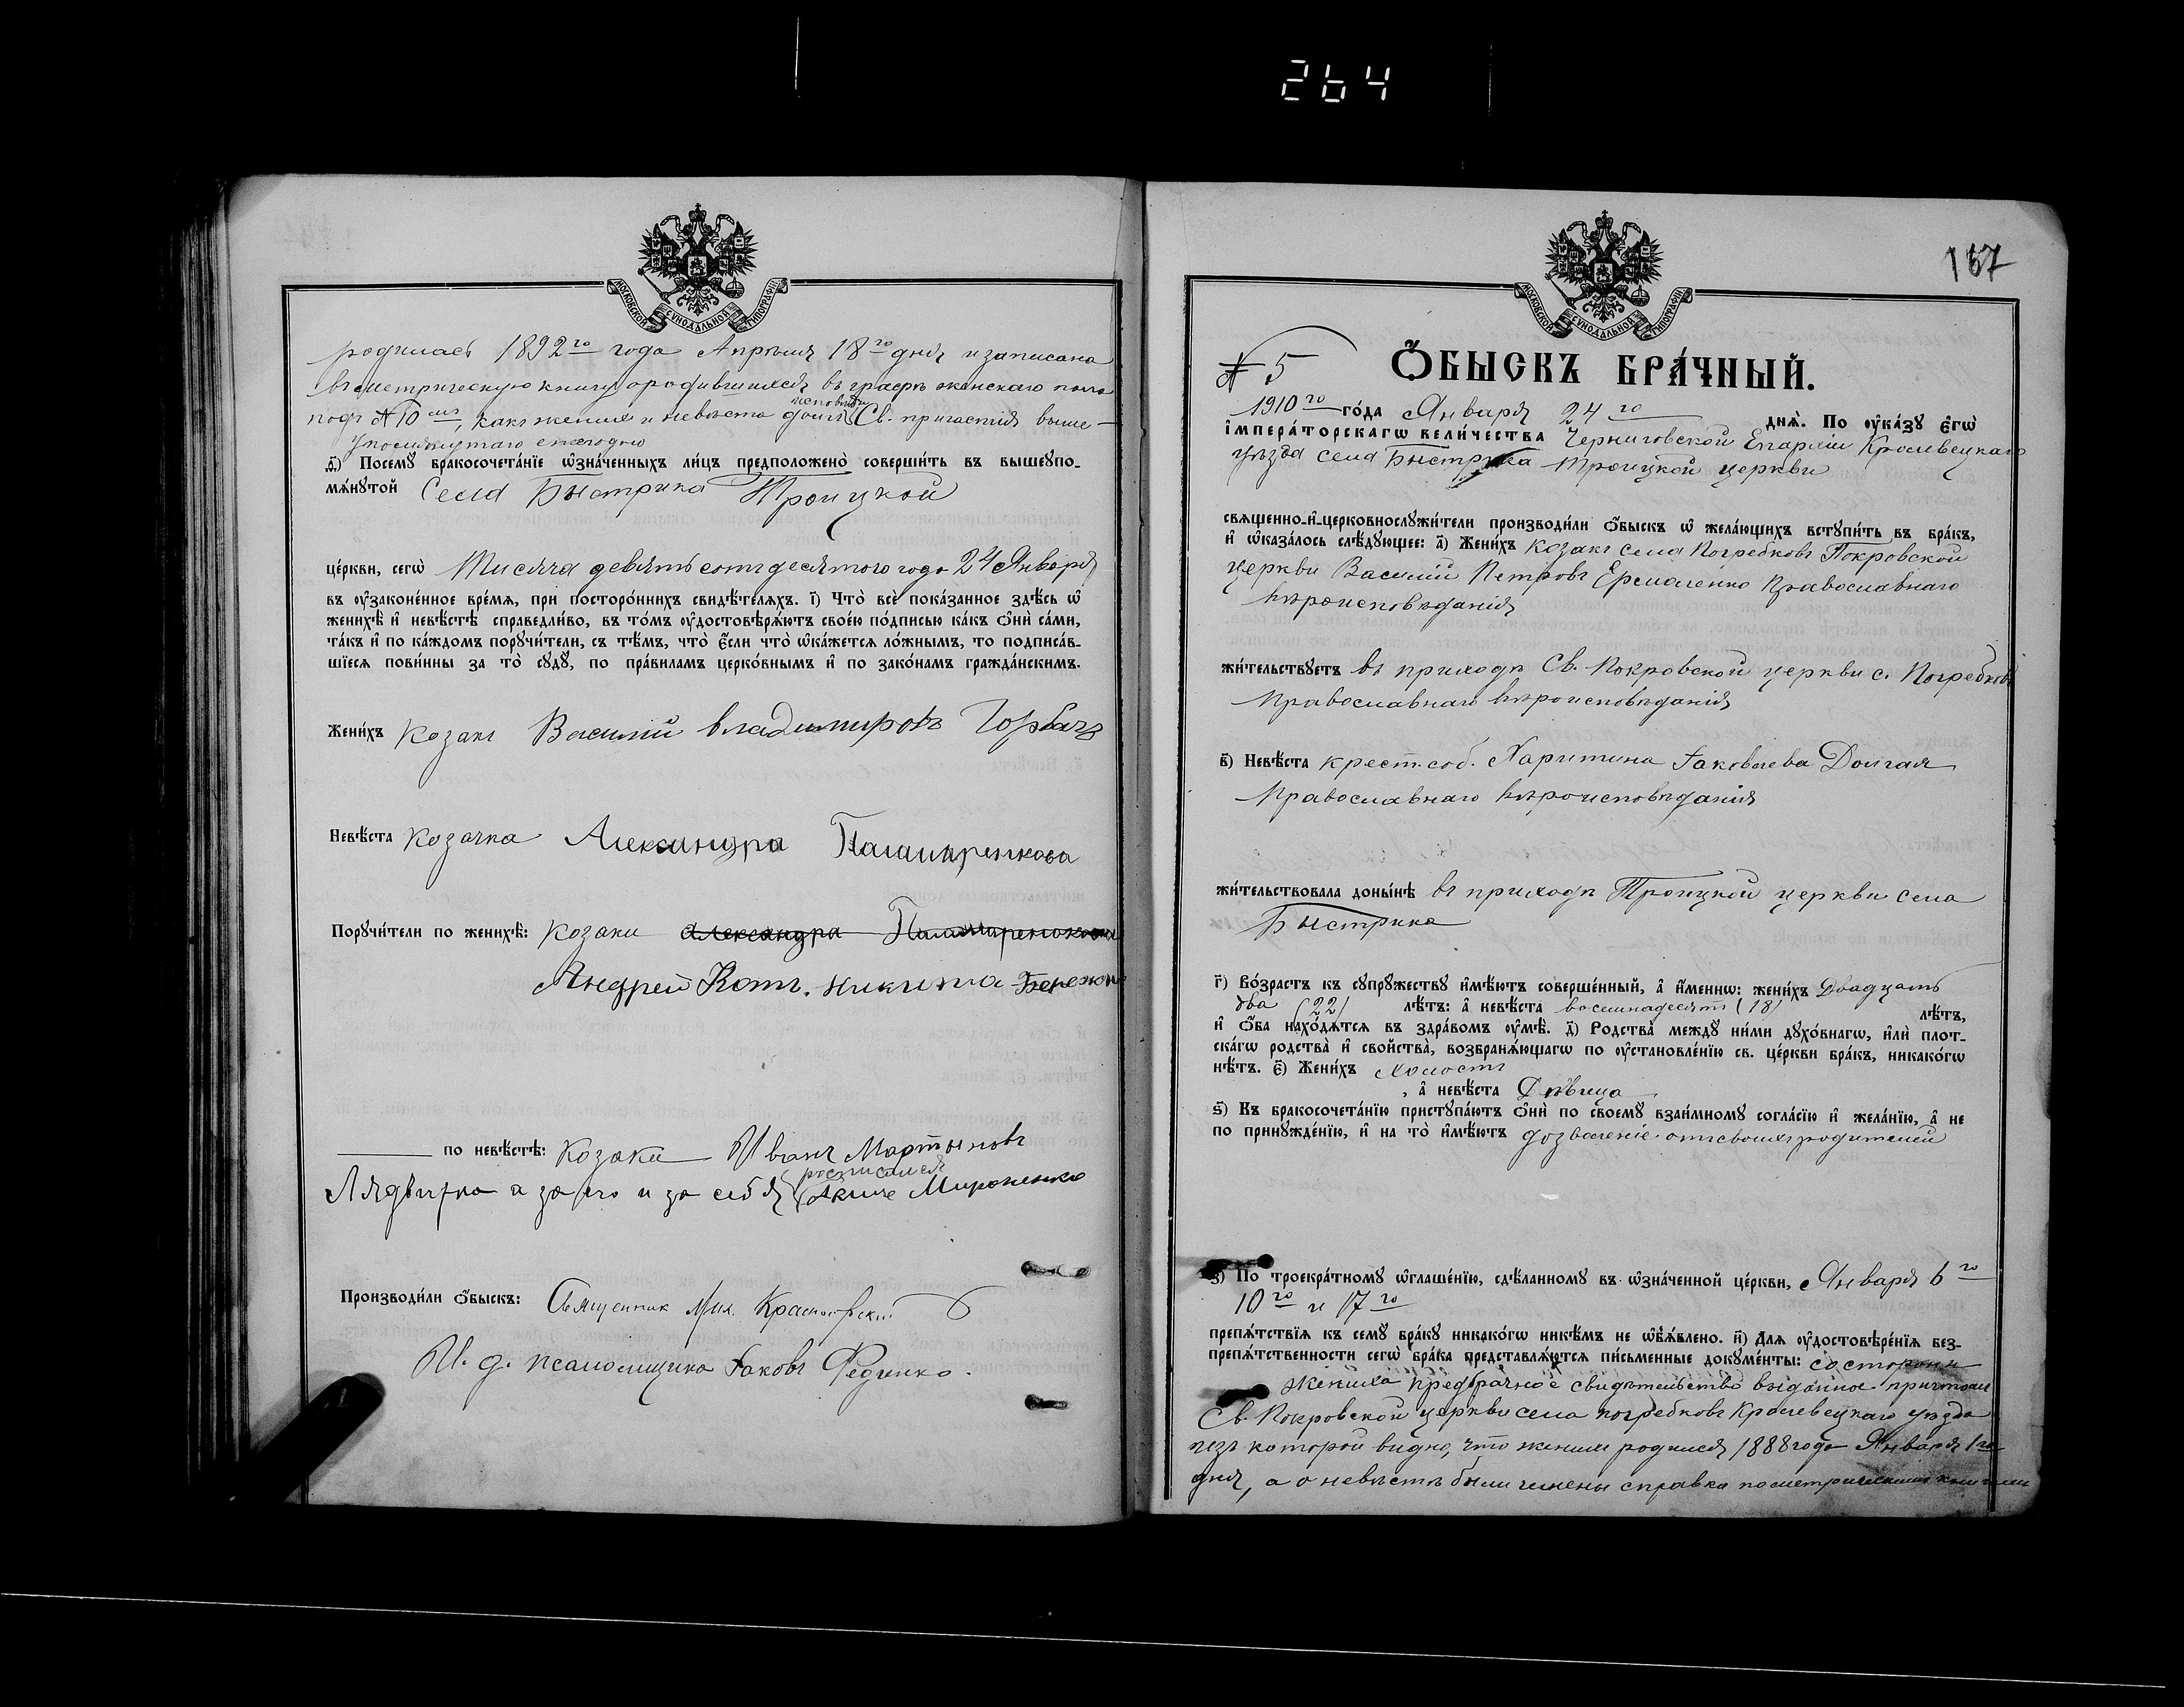 264
МОСКОВСКОЙ СѴНОДАЛЬНОЙ ТИПОГРАФІИ
родилась 1892го года Апрѣля 18го дня и записана
въ метрическую книгу о родившихся въ графѣ женскаго пола
подъ № 10мъ, какъ женихъ и невѣста
исповѣди
Св. причастія выше-
упомянутаго ежегодно
Посемꙋ бракосочета́нїе ѡ҆зна́ченныхъ ли́цъ предположено̀ соверши́ть въ вышеꙋпо-
мѧ́нꙋтой Села Быстрика Троицкой
це́ркви, сегѡ̀ Тисяча девятьсотъ десятого года 24 Января
въ ᲂу҆зако́ненное вре́мѧ, при посторо́ннихъ свидѣ́телѧхъ. і҃) Что̀ всѐ пока́занное здѣ́сь ѡ҆
женихѣ̀ и҆ невѣ́стѣ справедли́во, въ то́мъ ᲂу҆достовѣрѧ́ютъ свое́ю по́дписью ка́къ ѻ҆нѝ са́ми,
та́къ и҆ по ка́ждомъ порꙋчи́тели, съ тѣ́мъ, что̀ є҆́сли что̀ ѡ҆ка́жетсѧ ло́жнымъ, то подписа́в-
шїесѧ пови́нны за то̀ сꙋдꙋ̀, по пра́виламъ церко́внымъ и҆ по зако́намъ гражда́нскимъ.
Жени́хъ Козакъ Василій Владимировъ Горбачъ
Невѣ́ста Козачка Александра Паламаренкова
Порꙋчи́тели по женихѣ̀: Козаки Александра Паламаренкова
Андрей Котъ. Никита
по невѣ́стѣ: Козаки Иванъ Мартыновъ
росписался
а за его и за себя Мироненко
Производи́ли ѻ҆́быскъ: Священник Мих.
И. д. псаломщика Іаковъ Феденко.
167
МОСКОВСКОЙ СѴНОДАЛЬНОЙ ТИПОГРАФІИ
№ 5
Ѻ҆́БЫСКЪ БРА́ЧНЫЙ.
1910го го́да Января 24го днѧ̀. По ᲂу҆ка́зꙋ Є҆гѡ̀
і҆мпера́торскагѡ вели́чества Черниговской Епархіи Кролевецкаго
уѣзда села Быстрика Троицкой церкви
свѧщенно-и҆-церковнослꙋжи́тели производи́ли ѻ҆́быскъ ѡ҆ жела́ющихъ встꙋпи́ть въ бра́къ,
и҆ ѡ҆каза́лось слѣ́дꙋющее: а҃) Жени́хъ Козакъ села Погребковъ Покровской
церкви Василій Петровъ Ермаченко Православнаго
вѣроисповѣданія
жи́тельствꙋетъ въ приходѣ Св. Покровской церкви с. Погребковъ
Православнаго вѣроисповѣданія
в҃) Невѣ́ста крест. соб. Харитина Іаковлева Долгая
Православнаго вѣроисповѣданія
жи́тельствовала доны́нѣ въ приходѣ Троицкой церкви села
Быстрика
г҃) Во́зрастъ къ сꙋпрꙋ́жествꙋ и҆мѣ́ютъ соверше́нный, а҆ и҆́меннѡ: жени́хъ Двадцать
два (22) лѣ́тъ: а҆ невѣ́ста восемнадесят (18) лѣ́тъ,
и҆ ѻ҆́ба нахо́дѧтсѧ въ здра́вомъ ᲂу҆мѣ̀. д҃) Родства̀ междꙋ̀ ни́ми дꙋхо́внагѡ, и҆лѝ плот-
ска́гѡ родства̀ и҆ свойства̀, возбранѧ́ющагѡ по ᲂу҆становле́нїю св. це́ркви бра́къ, никако́гѡ
нѣ́тъ. є҃) Жени́хъ холостъ
, а҆ невѣ́ста Дѣвица
ѕ҃) Къ бракосочета́нїю пристꙋпа́ютъ ѻ҆нѝ по своемꙋ̀ взаи́мномꙋ согла́сїю и҆ жела́нїю, а҆ не
по принꙋжде́нїю, и҆ на то̀ и҆мѣ́ютъ дозволеніе отъ своихъ родителей
з҃) По троекра́тномꙋ ѡ҆глаше́нїю, сдѣ́ланномꙋ въ ѡ҆зна́ченной це́ркви, Января 6го
10го и 17го
препѧ́тствїѧ къ семꙋ̀ бра́кꙋ никако́гѡ никѣ́мъ не ѡ҆б̾ѧ́влено. и҃) Длѧ ᲂу҆достовѣре́нїѧ без-
препѧ́тственности сегѡ̀ бра́ка представлѧ́ютсѧ пи́сьменные докꙋме́нты: со стороны
жениха предбрачное свидѣтельство выданное причтомъ
Св. Покровской церкви села Погребковъ Кролевецкаго уѣзда
изъ которой видно, что женихъ родился 1888 года Января 1го
дня, а о невѣстѣ были чинены справки по метрическимъ книгамъ